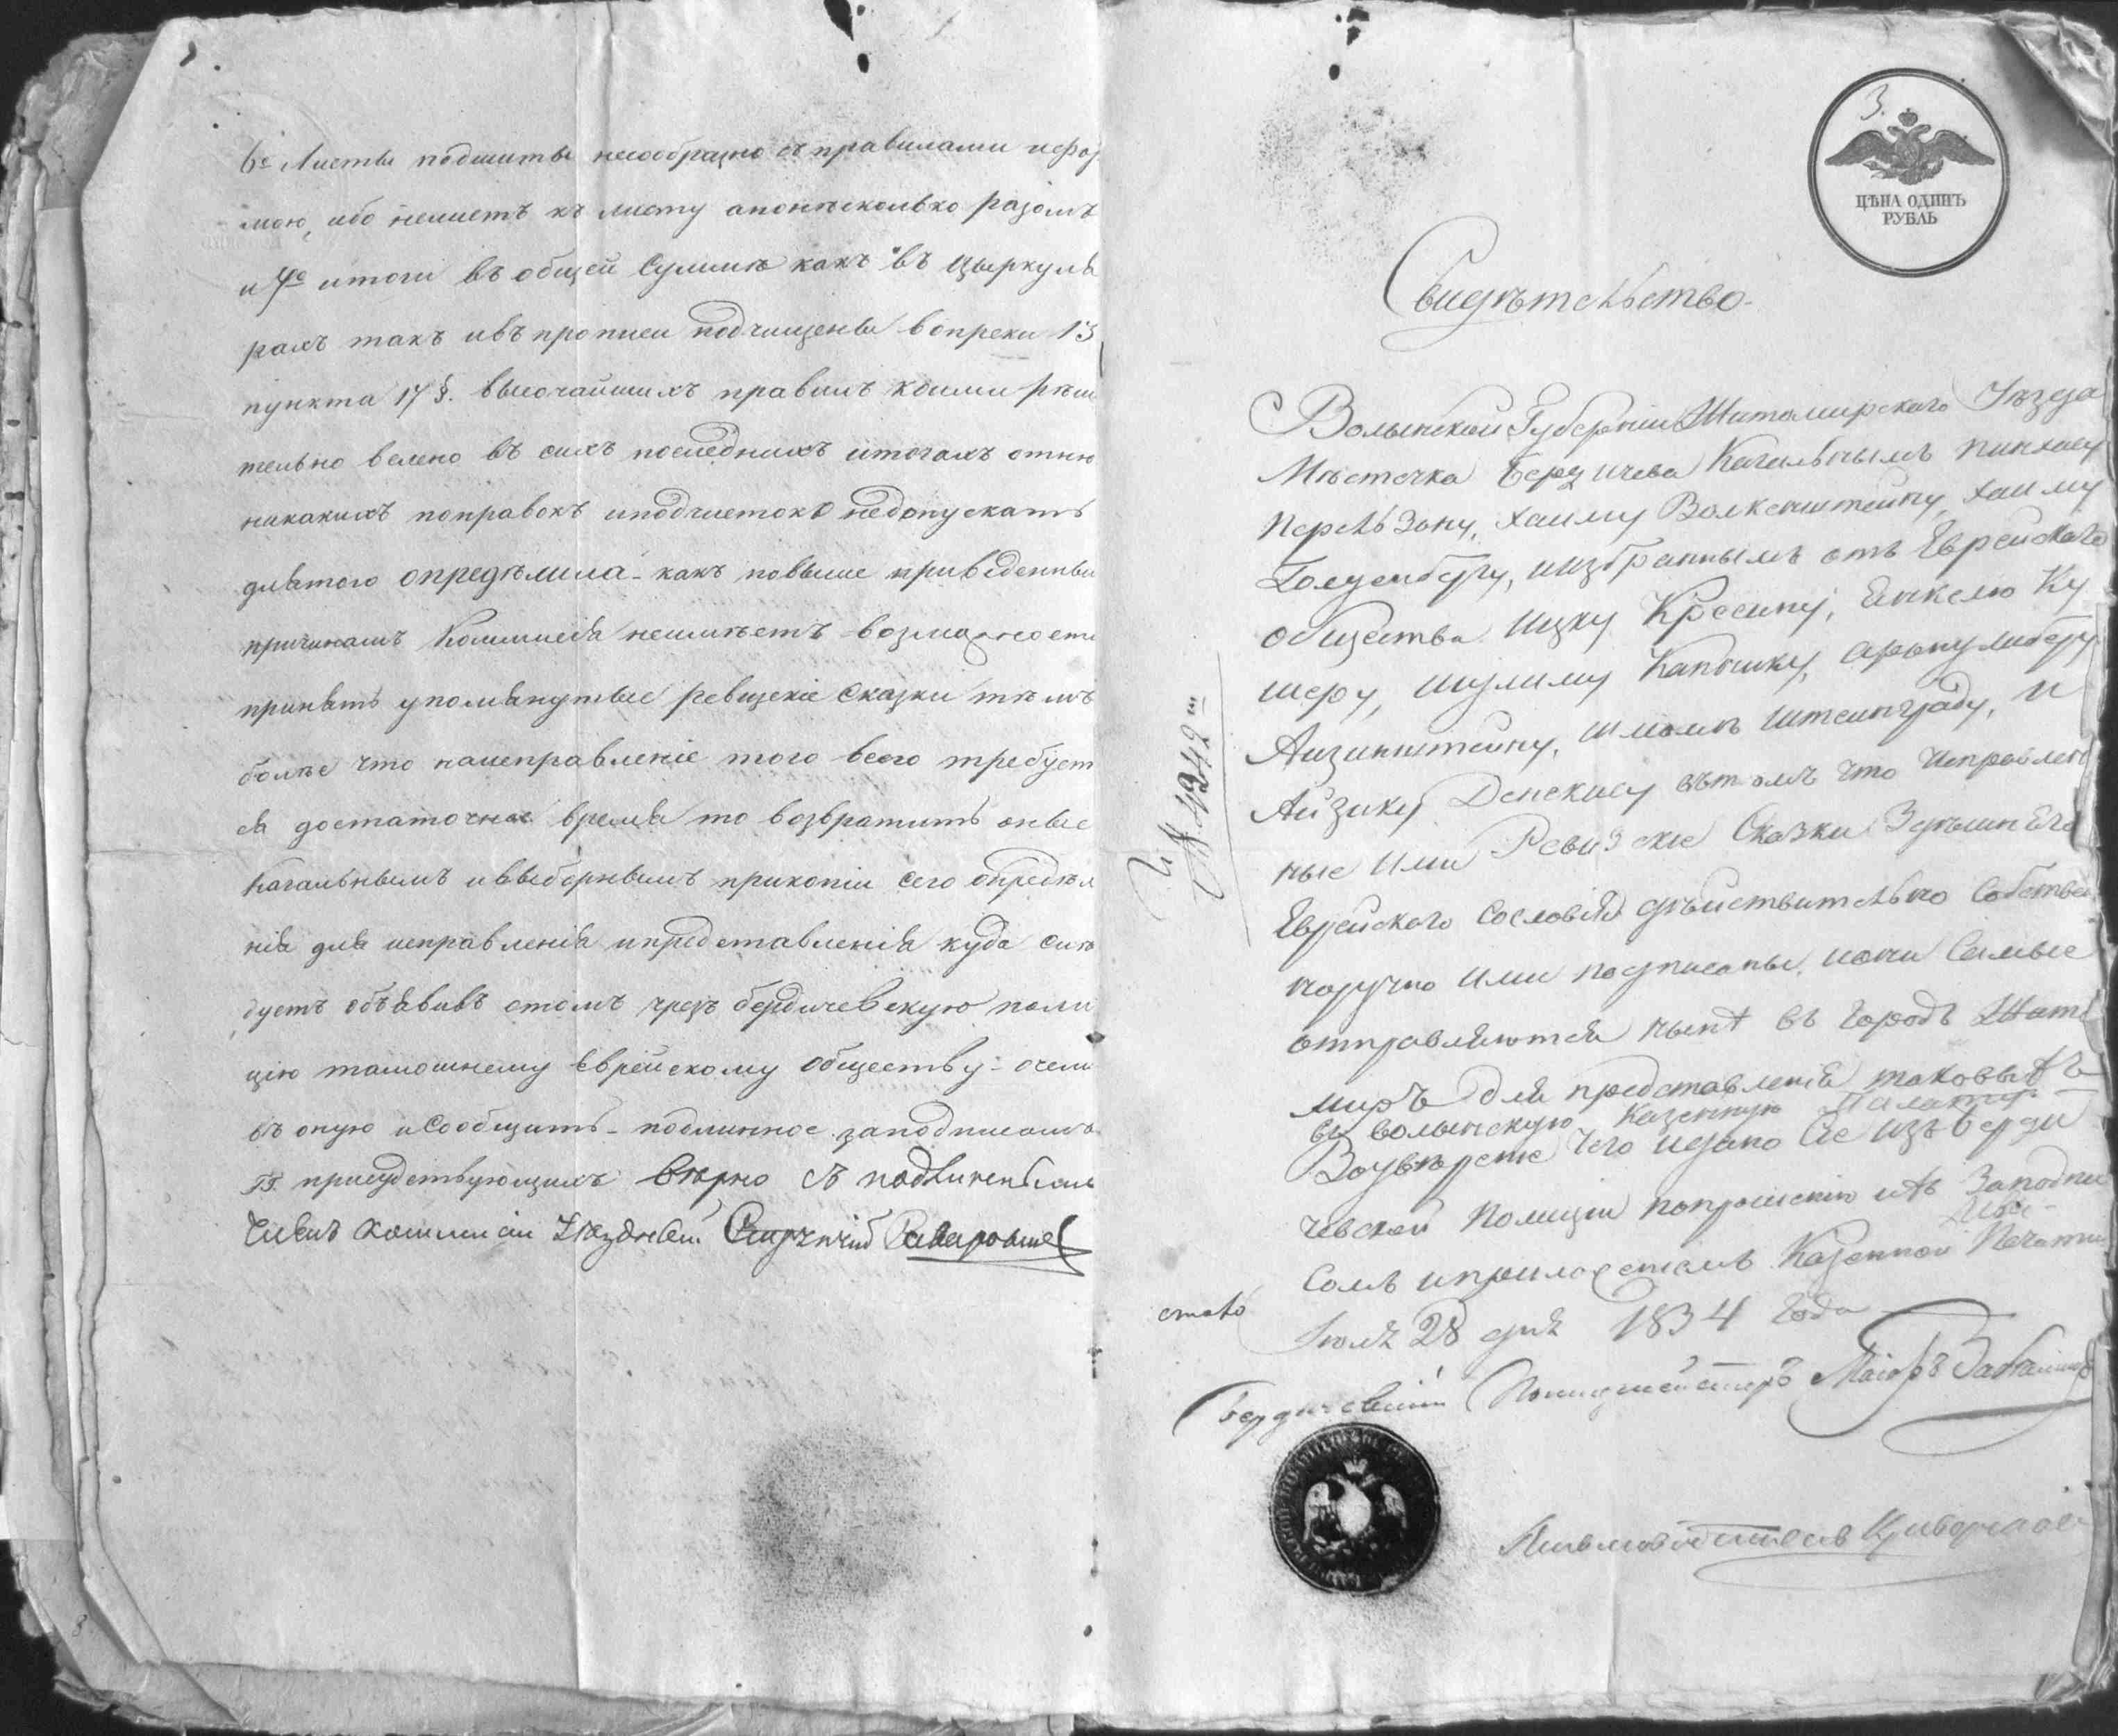 6е Листы подшиты несообразно съ правилами ифор
мою, ибо нелистъ къ листу апонѣсколько разомъ
и 7е итоги въ общей Суммѣ какъ въ цыркуля
рахъ такъ ивъ прописи подчищены вопреки 13
пункта 17 §. высочайшихъ правилъ коими рѣши
тельно велено въ сихъ последнихъ итогахъ отню
никакихъ поправокъ иподчистокъ недопускать
длятого опредѣлила - какъ повыше приведеннымъ
причинамъ Коммисія неимѣетъ возможности
принять упомянутые ревизскіе сказки тѣмъ
болѣе что наисправленіе того всего требует
ся достаточное время то возвратить оные
Кагальнымъ ивыборнымъ прикопіи сего опредѣл
нія для исправленія ипредставленія куда слѣ
дуетъ объявивъ отомъ чрезъ бердичевскую поли
цію тамошнему еврейскому обществу - очемъ
въ оную исообщить - подлинное заподписомъ
ГГ. присудствующихъ Вѣрно съ подлиннымъ
Членъ Коммисіи Уѣздный
3.
ЦѢНА ОДИНЪ
РУБЛЬ
Свидѣтельство.
Волынской Губерніи Житомирского Уѣзда
Мѣстечка Бердичева Кагальнымъ Пинхасу
Перельзону, Хаиму Волкенштейну, Хаиму
Голденбергу, иизбраннымъ отъ Еврейского
общества Ицку Кресину, Янкелю Ку
шеру, Шулиму Капошику, Арону Либеру
Аизинштейну, Шломѣ Штейнграду, и
Айзику Денекису вътомъ что исправлен
ные ими Ревизские Сказки Здешнего
Еврейского сословія дѣйствительно собствен
норучно ими подписаны, иони Самые
отправляются нынѣ въ городъ Жито
миръ для представленія таковыхъ
въ волынскую Казенную Палату.
Воувѣрение чего издано сие изъ Берди
чевской Полиции попрошенію ихъ Заподпи
сомъ иприложениемъ Казенной Печати
Іюля 28 дня 1834 года
Бердичевский Полицмейстеръ Маіоръ
Писмоводитель
№ 4942